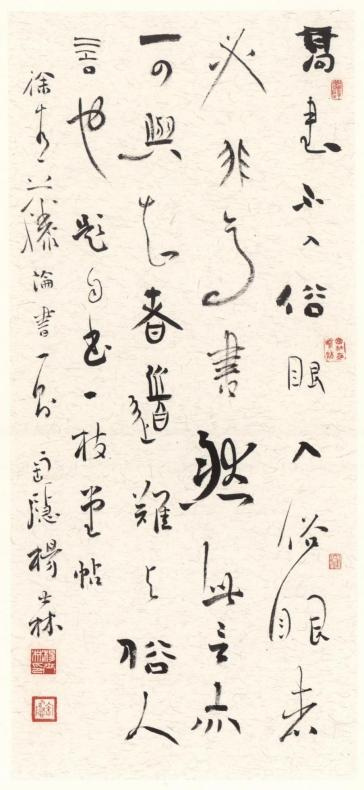 高書不入俗眼入俗眼者
必非高書然此言亦
可與知者道難与俗人
言也題自書一枝堂帖
徐青藤論書一則 隱楊士林